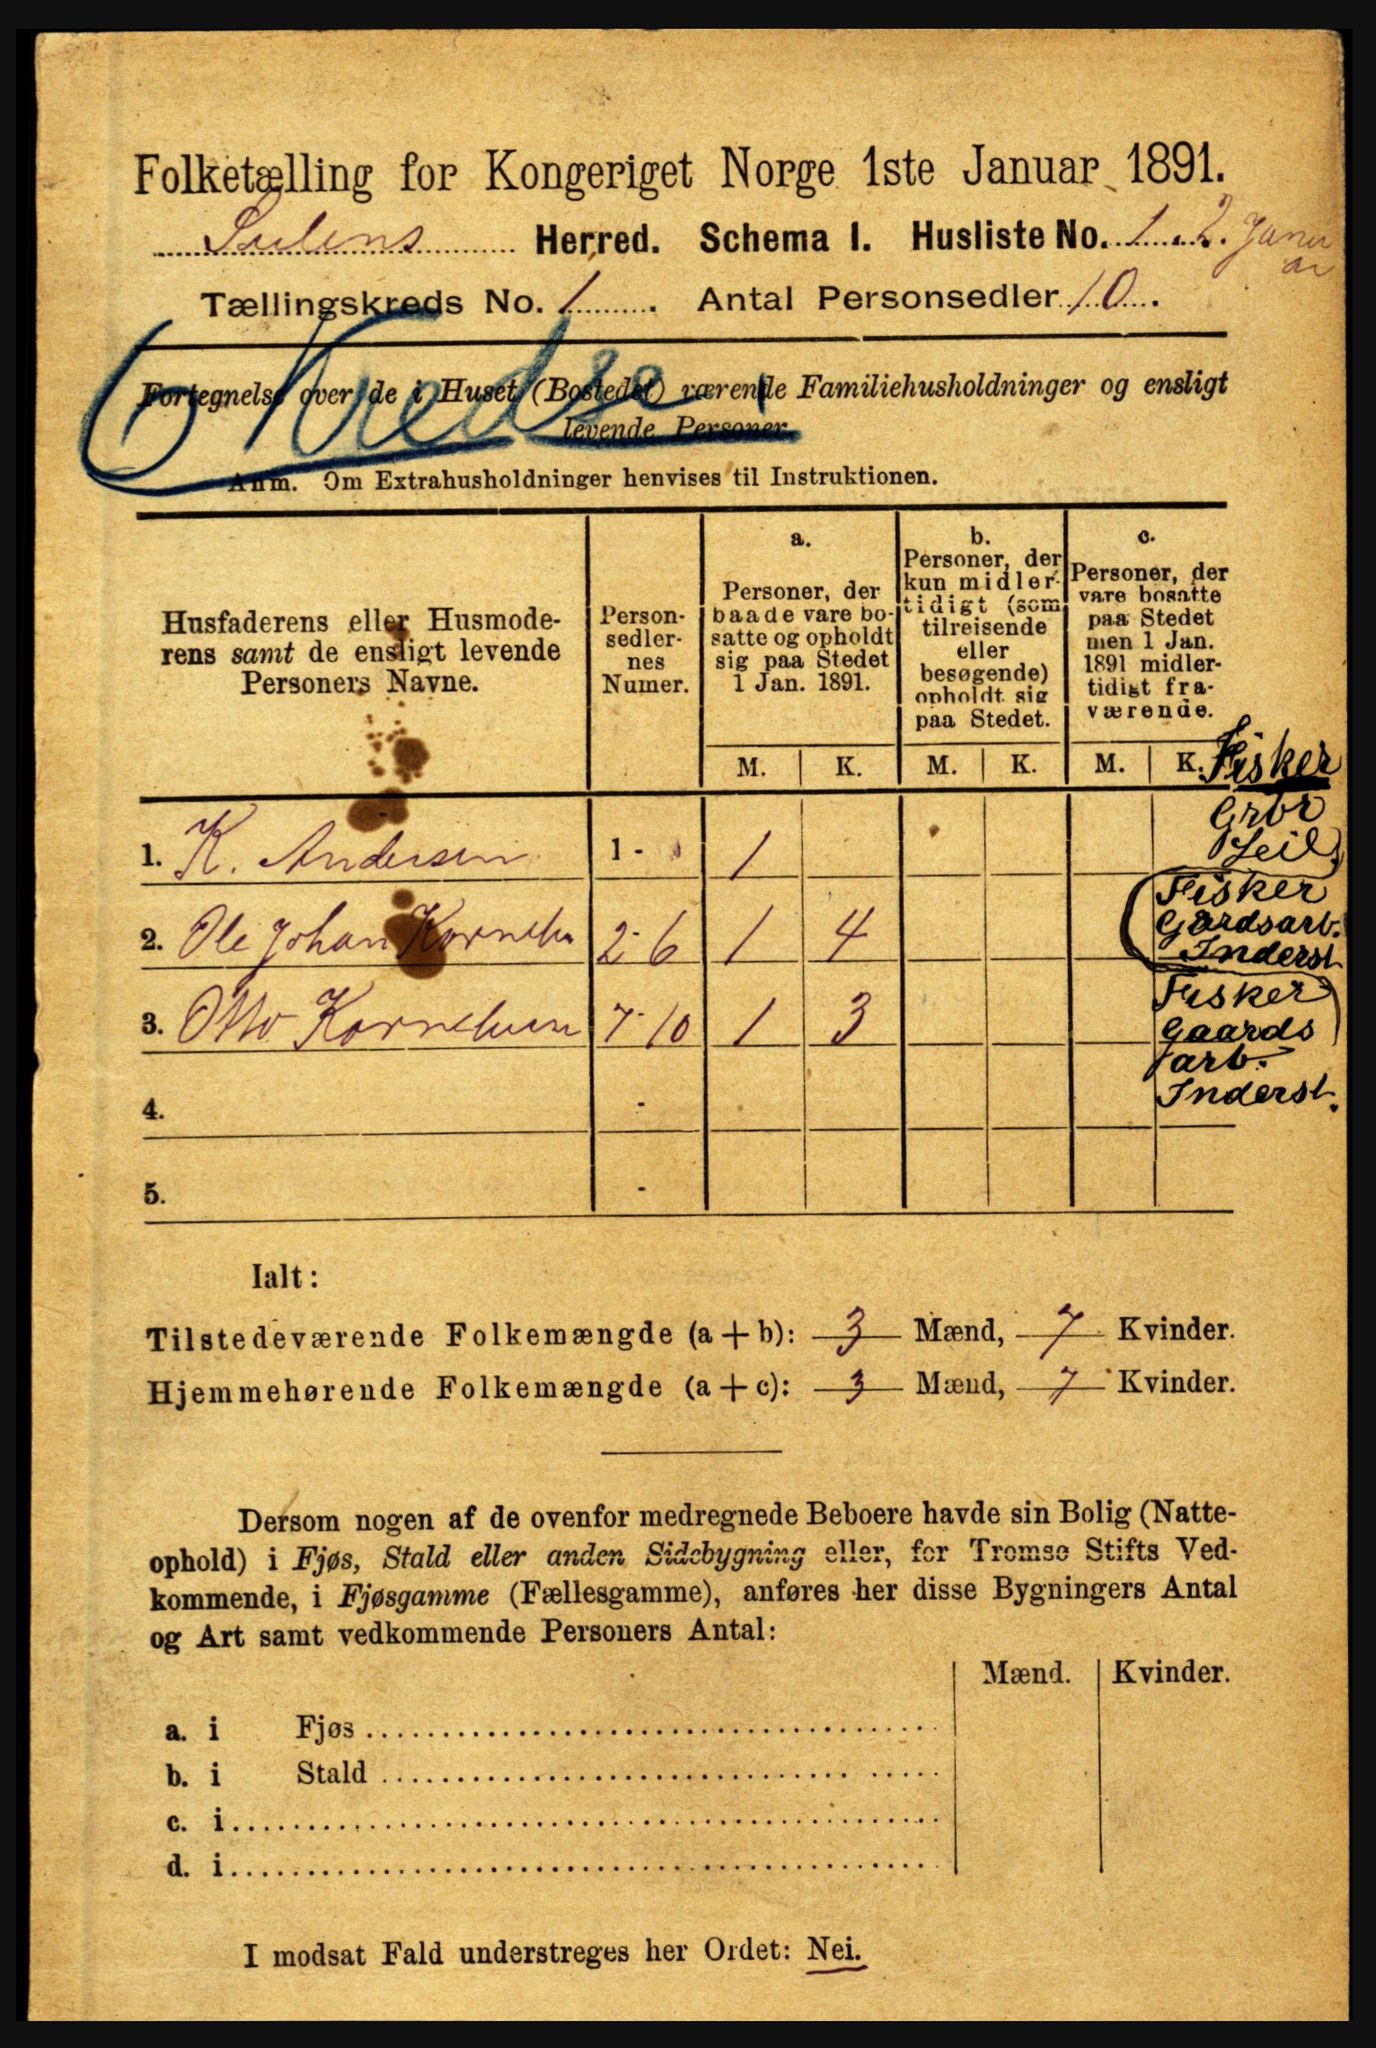 Folketælling for Kongeriget Norge 1ste Januar 1891.
Sulens Herred. Schema I. Husliste No. 1. 2. Janu
ar
Tællingskreds No. 1. Antal Personsedler 10.
Kreds 1
Fortegnelse over de i Huset (Bostedet) værende Familiehusholdninger og ensligt
levende Personer.
Anm. Om Extrahusholdninger henvises til Instruktionen.
Husfaderens eller Husmode-
rens samt de ensligt levende
Personers Navne.
Person-
sedler-
nes
Numer.
a.
Personer, der
baade vare bo-
satte og opholdt
sig paa Stedet
1 Jan. 1891.
b.
Personer, der
kun midler-
tidigt (som
tilreisende
eller
besøgende)
opholdt sig
paa Stedet.
c.
Personer, der
vare bosatte
paa Stedet
men 1 Jan.
1891 midler-
tidigt fra-
værende.
M. K. M. K. M. K.
Fisker
Grbr
Leil.
1. K. Andersen 1 - 1 1
Fisker
Gardsarb.
Inderst
2. Ole Johan Kornels 2-6 1 4
Fisker
Gaards
arb.
Inderst.
3. Otto Kornelsen 7-10 1 3
4. -
5. -
Ialt:
Tilstedeværende Folkemængde (a + b): 3 Mænd, 7 Kvinder.
Hjemmehørende Folkemængde (a + c): 3 Mænd, 7 Kvinder.
Dersom nogen af de ovenfor medregnede Beboere havde sin Bolig (Natte-
ophold) i Fjøs, Stald eller anden Sidebygning eller, for Tromsø Stifts Ved-
kommende, i Fjøsgamme (Fællesgamme), anføres her disse Bygningers Antal
og Art samt vedkommende Personers Antal:
Mænd. Kvinder.
a. i Fjøs
b. i Stald
c. i
d. i
I modsat Fald understreges her Ordet: Nei.